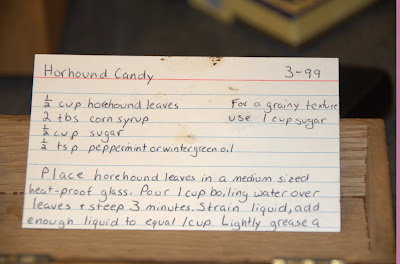 Horhound Candy 3-99
1/2 cup horehound leaves For a grainy texture
2 tbs corn syrup use 1 cup sugar
1/2 cup sugar
1/2 tsp peppermint or wintergreen oil
Place horehound leaves in a medium sized
heat-proof glass. Pour 1 cup boiling water over
leaves + steep 3 minutes. Strain liquid, add
enough liquid to equal 1 cup. Lightly grease a